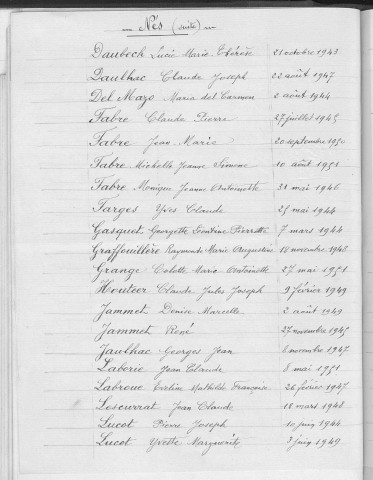 Nés (suite)
Daubech Lucie Marie Thérèse 21 octobre 1943
Daulhac Claude Joseph 22 août 1947
Del Mazo Maria del Carmen 2 août 1944
Fabre Claude Pierre 27 juillet 1945
Fabre Jean Marie 20 septembre 1950
Fabre Michelle Jeanne Simone 10 août 1951
Fabre Monique Jeanne Antoinette 31 mai 1946
Farges Yves Claude 25 mai 1944
Gasquet Georgette Pierrette 7 mars 1944
Graffouillère Raymonde Marie Augustine 18 novembre 1948
Grange Colette Marie Antoinette 27 mai 1951
Houteer Claude Jules Joseph 9 février 1949
Jammet Denise Marcelle 2 août 1949
Jammet René 27 novembre 1945
Jaulhac Georges Jean 6 novembre 1947
Laborie Jean Claude 8 mai 1951
Labroue Eveline Mathilde Françoise 26 février 1947
Lescurrat Jean Claude 18 mars 1948
Lucot Pierre Joseph 10 juin 1944
Lucot Yvette Marguerite 3 juin 1949